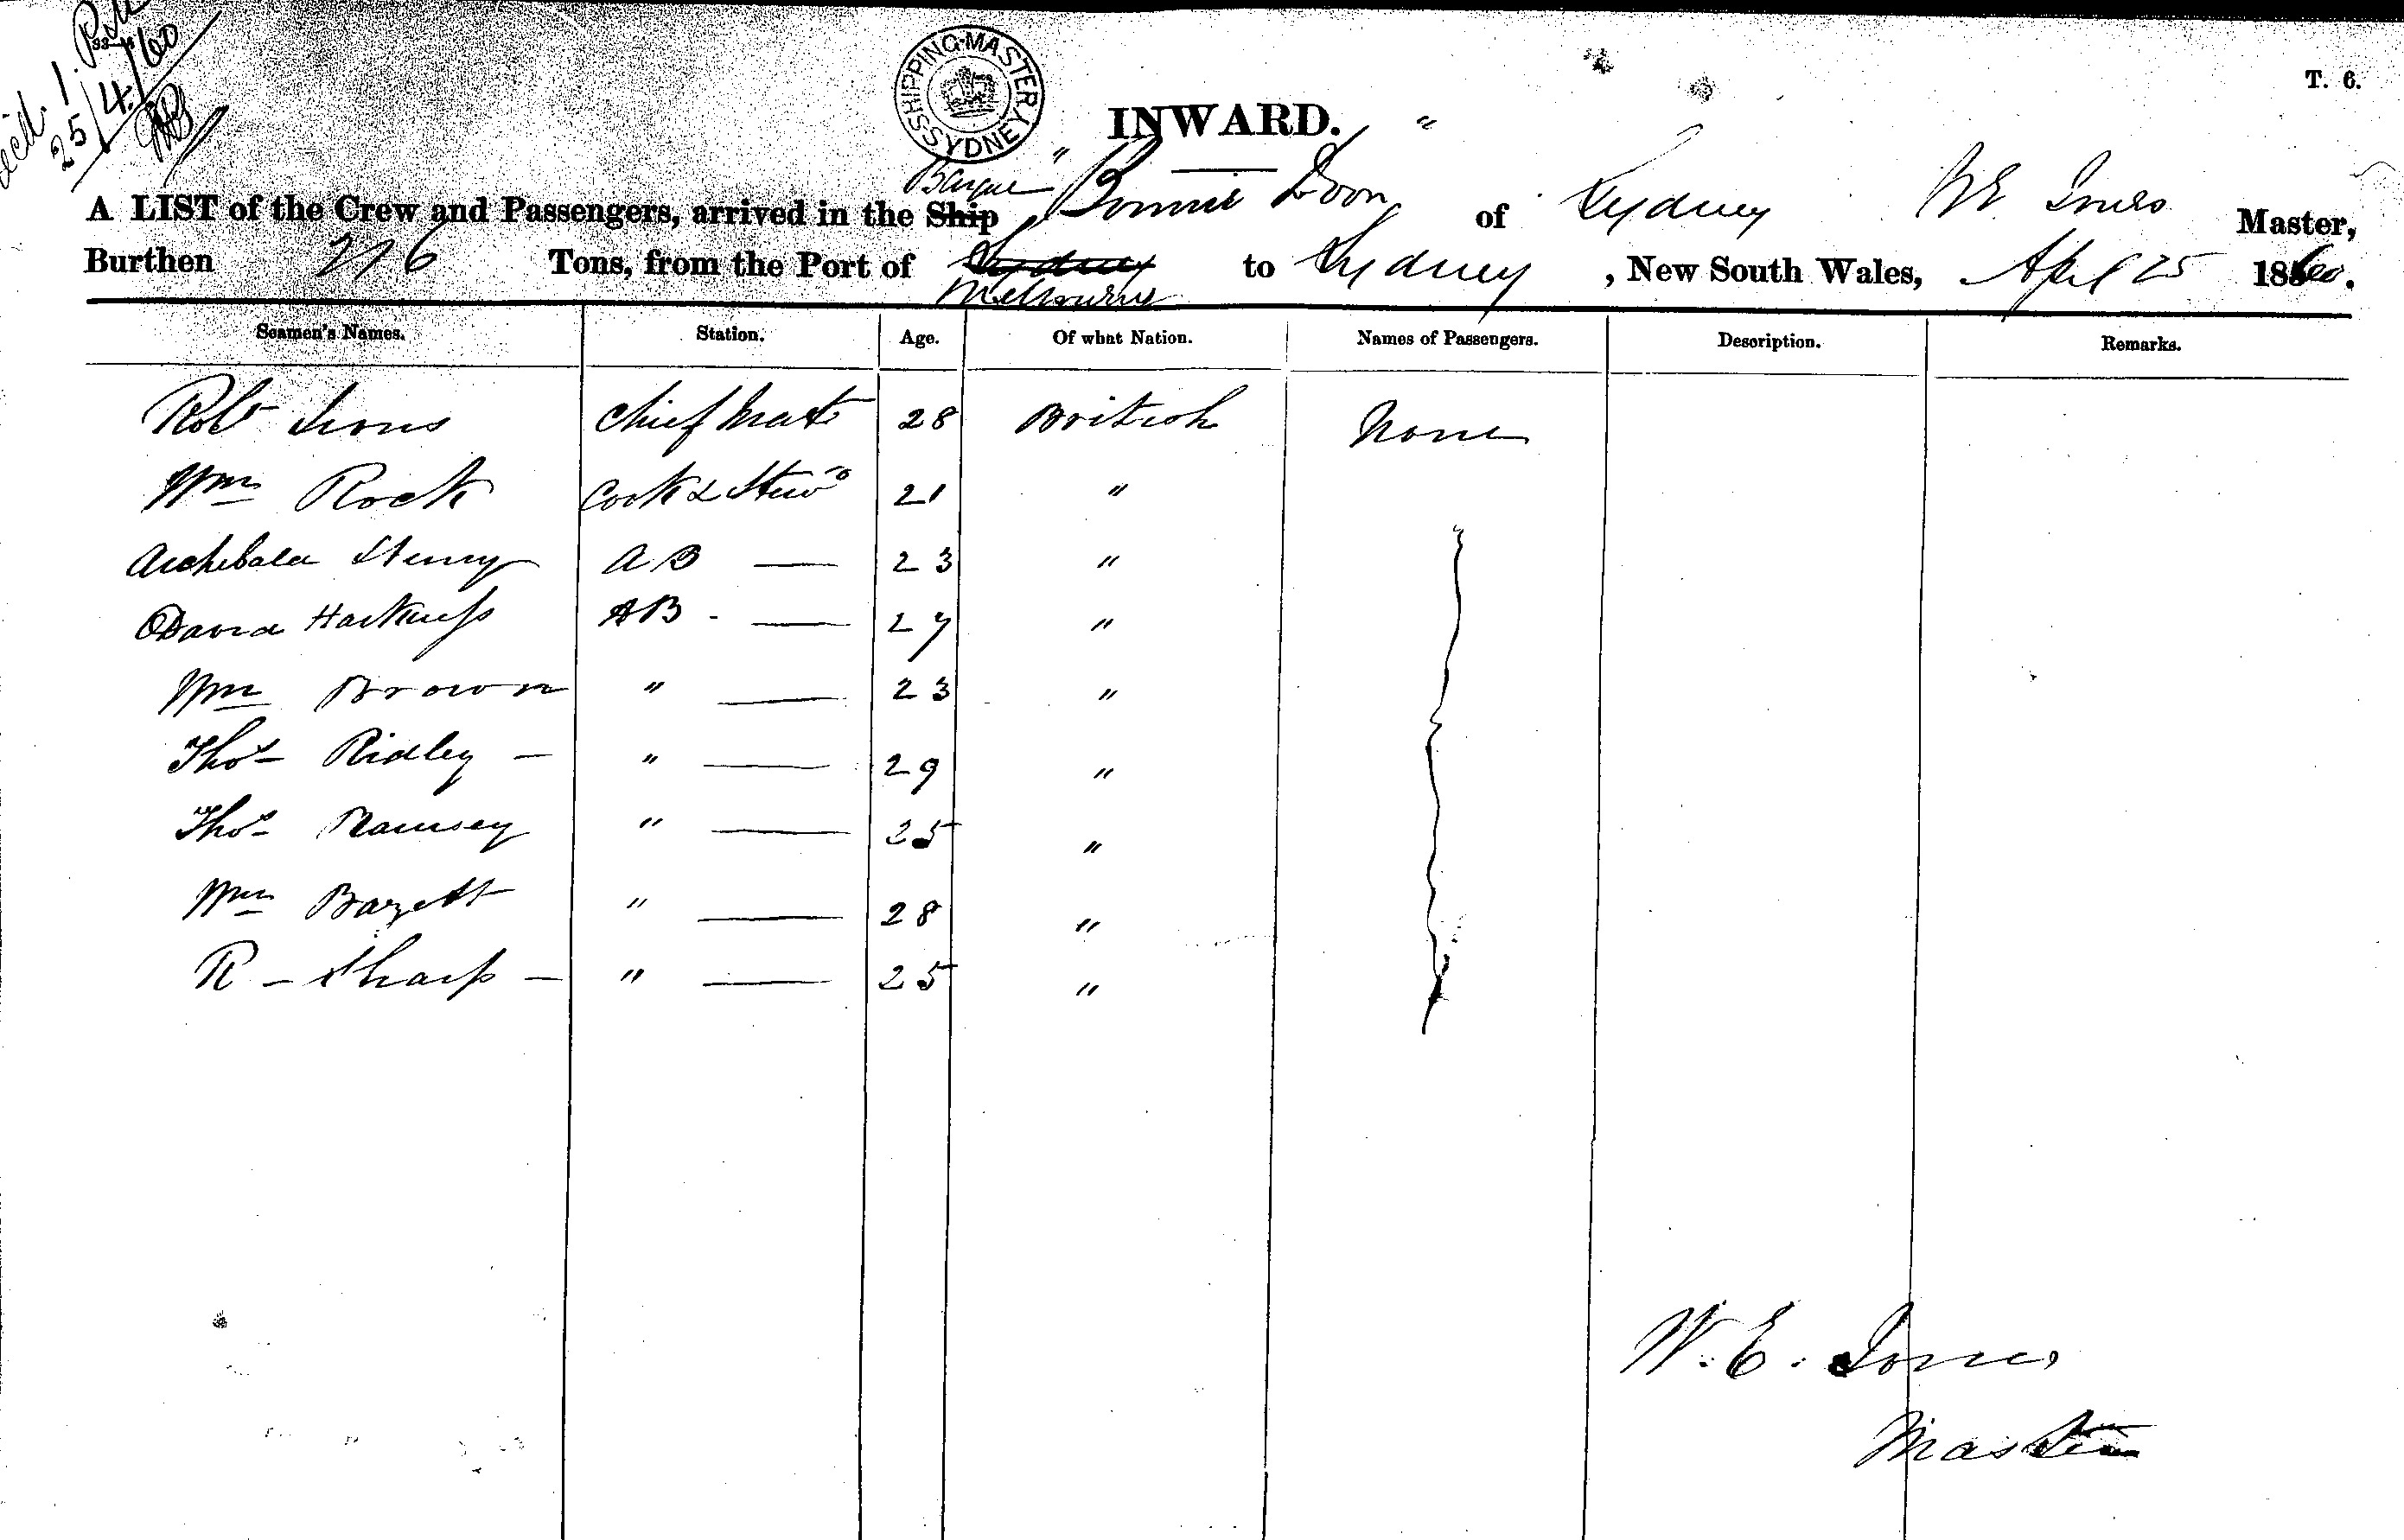 Rec'd. 1. P.M.
25/4/60
SHIPPING MASTER SYDNEY
T. 6.
INWARD.
A LIST of the Crew and Passengers, arrived in the Ship Barque "Bonnie Doon" of Sydney W E Jones Master,
Burthen 276 Tons, from the Port of Sydney Melbourne to Sydney, New South Wales, April 25 1860.
Seamen's Names. Station. Age. Of what Nation. Names of Passengers. Description. Remarks.
Robt chief mate 28 British None
Wm Rock Cook & Stewd 21 "
Archibald Henry AB — 23 "
David Harkness AB - — 27 "
Wm Brown " — 23 "
Thos Ridley — " — 29 "
Thos Ramsey " — 25 "
Wm Bazett " — 28 "
R — Sharp — " — 25 "
W. E. Jones
Master